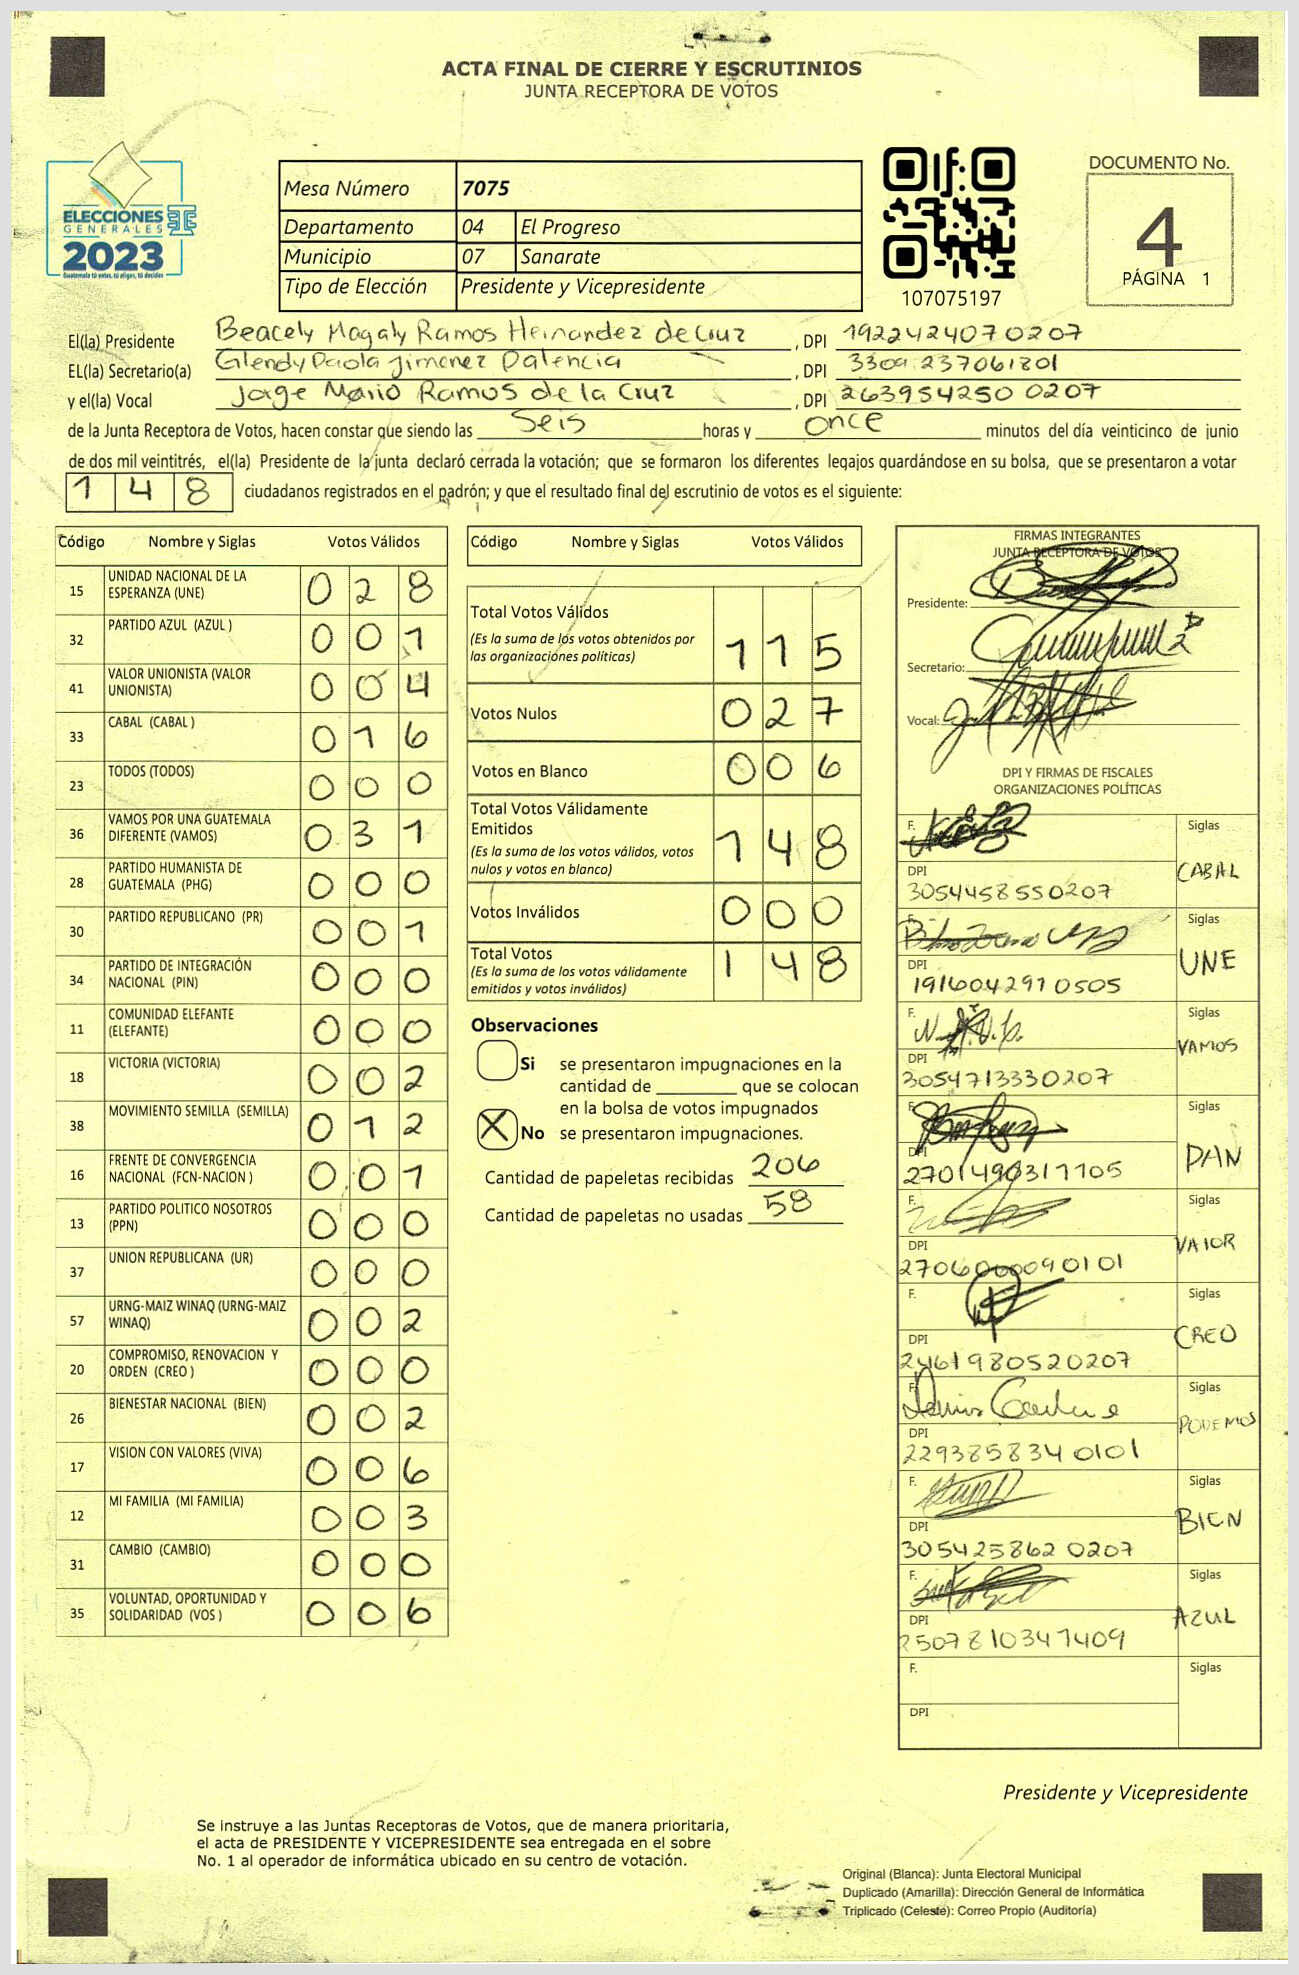 ACTA FINAL DE CIERRE Y ESCRUTINIOS
JUNTA RECEPTORA DE VOTOS
ELECCIONES
GENERALES
2023
Guatemala tú votas, tú eliges, tú decides
Mesa Número 7075
Departamento 04 El Progreso
Municipio 07 Sanarate
Tipo de Elección Presidente y Vicepresidente
107075197
DOCUMENTO No.
4
PÁGINA 1
El(la) Presidente Beacely Magaly Ramos Hernandez de Cruz , DPI 1922424070207
EL(la) Secretario(a) Glendy Paola Jimenez Palencia , DPI 3309 237061801
y el(la) Vocal Jorge Mario Ramos de la Cruz , DPI 263954250 0207
de la Junta Receptora de Votos, hacen constar que siendo las Seis horas y once minutos del día veinticinco de junio
de dos mil veintitrés, el(la) Presidente de la junta declaró cerrada la votación; que se formaron los diferentes legajos guardándose en su bolsa, que se presentaron a votar
1 4 8 ciudadanos registrados en el padrón; y que el resultado final del escrutinio de votos es el siguiente:
Código Nombre y Siglas Votos Válidos
15 UNIDAD NACIONAL DE LA ESPERANZA (UNE) 0 2 8
32 PARTIDO AZUL (AZUL ) 0 0 1
41 VALOR UNIONISTA (VALOR UNIONISTA) 0 0 4
33 CABAL (CABAL ) 0 1 6
23 TODOS (TODOS) 0 0 0
36 VAMOS POR UNA GUATEMALA DIFERENTE (VAMOS) 0 3 1
28 PARTIDO HUMANISTA DE GUATEMALA (PHG) 0 0 0
30 PARTIDO REPUBLICANO (PR) 0 0 1
34 PARTIDO DE INTEGRACIÓN NACIONAL (PIN) 0 0 0
11 COMUNIDAD ELEFANTE (ELEFANTE) 0 0 0
18 VICTORIA (VICTORIA) 0 0 2
38 MOVIMIENTO SEMILLA (SEMILLA) 0 1 2
16 FRENTE DE CONVERGENCIA NACIONAL (FCN-NACION ) 0 0 1
13 PARTIDO POLITICO NOSOTROS (PPN) 0 0 0
37 UNION REPUBLICANA (UR) 0 0 0
57 URNG-MAIZ WINAQ (URNG-MAIZ WINAQ) 0 0 2
20 COMPROMISO, RENOVACION Y ORDEN (CREO ) 0 0 0
26 BIENESTAR NACIONAL (BIEN) 0 0 2
17 VISION CON VALORES (VIVA) 0 0 6
12 MI FAMILIA (MI FAMILIA) 0 0 3
31 CAMBIO (CAMBIO) 0 0 0
35 VOLUNTAD, OPORTUNIDAD Y SOLIDARIDAD (VOS ) 0 0 6
Código Nombre y Siglas Votos Válidos
Total Votos Válidos 1 1 5
(Es la suma de los votos obtenidos por
las organizaciones políticas)
Votos Nulos 0 2 7
Votos en Blanco 0 0 6
Total Votos Válidamente
Emitidos 1 4 8
(Es la suma de los votos válidos, votos
nulos y votos en blanco)
Votos Inválidos 0 0 0
Total Votos 1 4 8
(Es la suma de los votos válidamente
emitidos y votos inválidos)
Observaciones
Si se presentaron impugnaciones en la
cantidad de ________ que se colocan
en la bolsa de votos impugnados
X No se presentaron impugnaciones.
Cantidad de papeletas recibidas 206
Cantidad de papeletas no usadas 58
FIRMAS INTEGRANTES
JUNTA RECEPTORA DE VOTOS
Presidente:
Secretario:
Vocal:
DPI Y FIRMAS DE FISCALES
ORGANIZACIONES POLÍTICAS
F. Siglas
DPI CABAL
3054458550207
F. Siglas
DPI UNE
1916042910505
F. Siglas
DPI VAMOS
3054713330207
F. Siglas
DPI PAN
2701490317105
F. Siglas
DPI VALOR
2706000090101
F. Siglas
DPI CREO
2461980520207
F. Siglas
DPI PODEMOS
2293858340101
F. Siglas
DPI BIEN
3054258620207
F. Siglas
DPI AZUL
2507810347409
F. Siglas
DPI
Presidente y Vicepresidente
Se instruye a las Juntas Receptoras de Votos, que de manera prioritaria,
el acta de PRESIDENTE Y VICEPRESIDENTE sea entregada en el sobre
No. 1 al operador de informática ubicado en su centro de votación.
Original (Blanca): Junta Electoral Municipal
Duplicado (Amarilla): Dirección General de Informática
Triplicado (Celeste): Correo Propio (Auditoría)